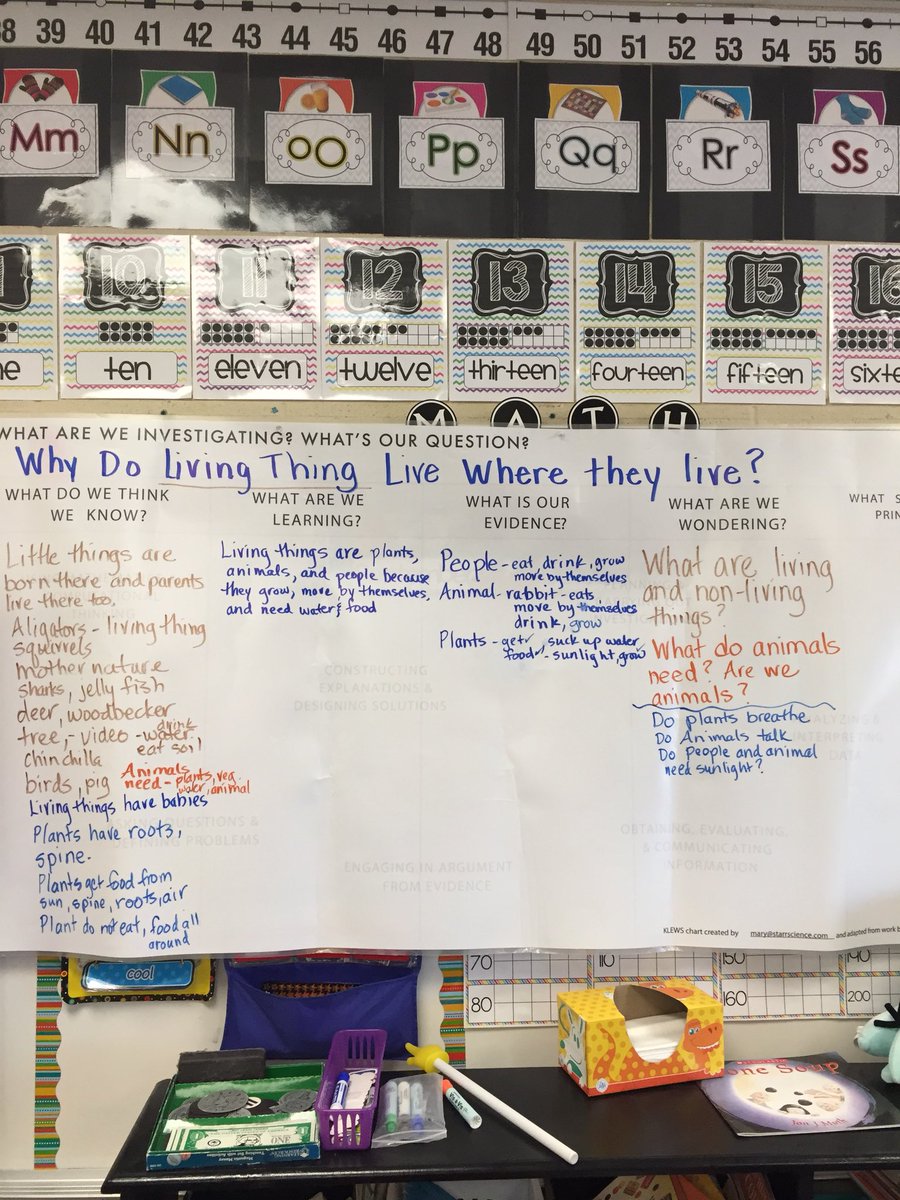 39 40 41 42 43 44 45 46 47 48 49 50 51 52 53 54 55 56
Mm Nn oO Pp Qq Rr Ss
10 11 12 13 14 15 16
ten eleven twelve thirteen fourteen fifteen
M A T H
WHAT ARE WE INVESTIGATING? WHAT'S OUR QUESTION?
Why Do Living Thing Live Where they live?
WHAT DO WE THINK
WE KNOW?
Little things are
born there and parents
live there too,
Aligators - living thing
squirrels
mother nature
sharks, jelly fish
deer, woodbecker
tree, - video - water,
drink
eat soil
chinchilla
birds, pig
Animals
need - plants, veg
water, animal
Living things have babies
Plants have roots,
spine.
Plants get food from
sun, spine, roots, air
Plant do not eat, food all
around
WHAT ARE WE
LEARNING?
Living things are plants,
animals, and people because
they grow, move by themselves,
and need water & food
CONSTRUCTING
EXPLANATIONS &
DESIGNING SOLUTIONS
ASKING QUESTIONS &
DEFINING PROBLEMS
ENGAGING IN ARGUMENT
FROM EVIDENCE
WHAT IS OUR
EVIDENCE?
People - eat, drink, grow
move by themselves
Animal - rabbit - eats,
move by themselves
drink, grow
Plants - get suck up water
food - sunlight, grow
WHAT ARE WE
WONDERING?
What are living
and non-living
things?
What do animals
need? Are we
animals?
Do plants breathe
Do Animals talk
Do People and animal
need sunlight?
OBTAINING, EVALUATING,
& COMMUNICATING
INFORMATION
WHAT
KLEWS chart created by mary@starrscience.com and adapted from work b
cool
70 110 150 190
80 160 200
ONE
one Soup